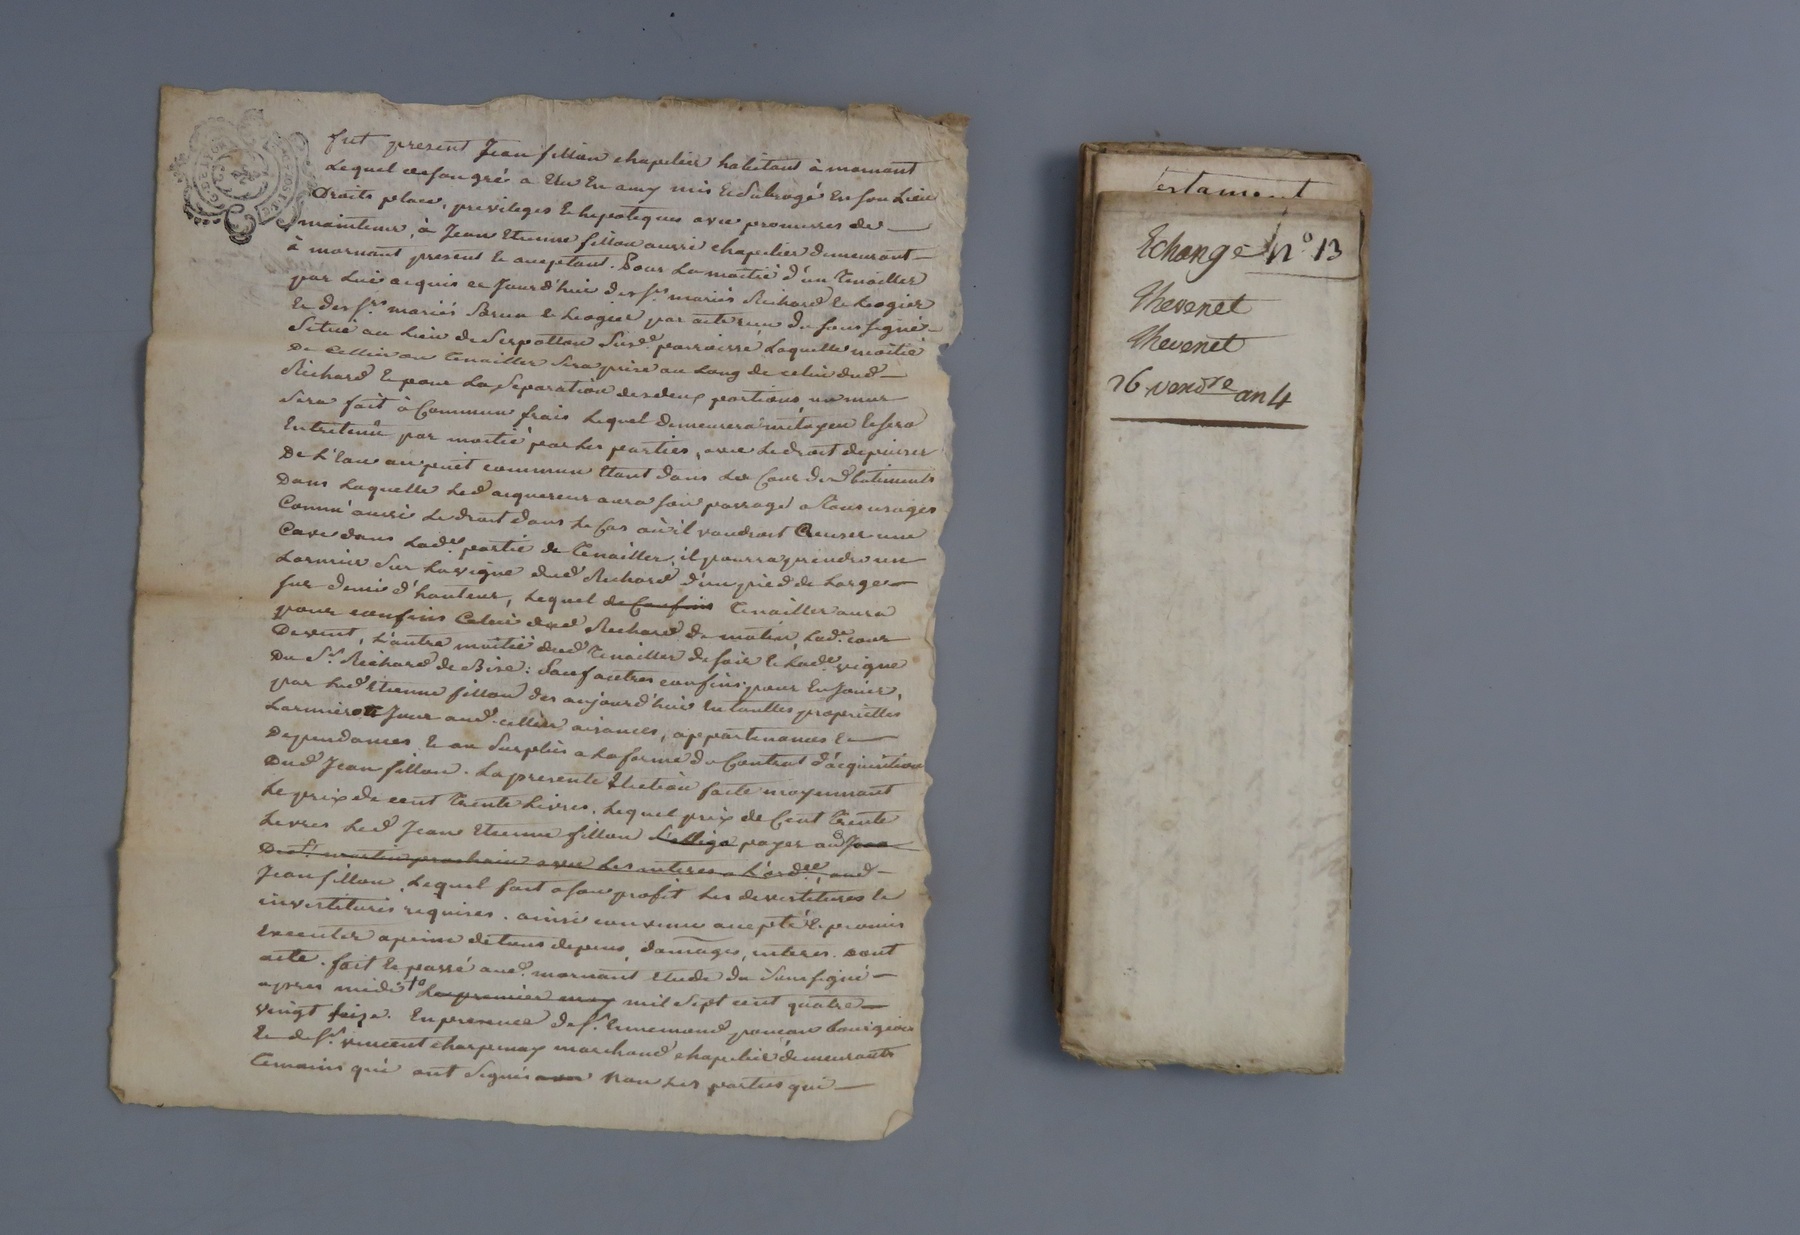 fut present Jean fillion chapelier habitant à mornant
Lequel de son gré a Elu En amy mis Et Subrogé En son Lieu
Droits place, privileges & hepoteques avec promesses de
maintenir, à Jean Etienne fillon aussi chapelier demeurant
à mornant present & acceptant. Pour La moitié d'un Tenailler
par Lui acquis ce Jourd'hui des Srs mariés Richard & Logier
& des Srs mariés Brun & Logier par acte reçu du soussigné
Situé au Lieu de Serpollon Susde parroisse Laquelle moitié
De cellier ou Tenailler Sera prise au Long de celui dud
Richard & pour La Separation des deux portions un mur
Sera fait à Commun frais Lequel demeurera mitoyen & sera
Entretenû par moitié par Les parties, avec Le droit de puiser
De L'Eau au puit commun Etant dans La Cour desd batiments
Dans Laquelle Led acquereur aura son passage a Tous usages
Comm'aussi Le droit dans Le Cas où il voudroit Creuser une
Cave dans Lade partie de Tenailler, il pourra prendre un
Larmier Sur La vigne dud Richard d'un pied de Large
sur demi d'hauteur, Lequel de Confins Tenailler aura
pour confins Celui dud Richard de matin Lade cour
De vent, L'autre moitié dud Tenailler de soir & Lade vigne
Du Sr Richard de Bise: Sauf autres confins pour En Jouir,
par Led Etienne fillon des aujourd'hui En touttes proprietés
Larmier ou Jour aud cellier aisances, appartenances &
Dependances & au Surplus a La forme du Contrat d'acquisition
Dud Jean fillon. La presente Election faite moyennant
Le prix de cent Trente Livres. Lequel prix de Cent Trente
Livres Led Jean Etienne fillon S'obliga payer aud Jean
De St martin prochain avec Les interes a L'ordre, aud
Jean fillon, Lequel fait a son profit Les devestitures &
investitures requises. ainsi convenu accepté & promis
Executer a peine de tous depens, damages, interes. Dont
acte. fait & passé aud mornant Etude du Soussigné
apres midi Le premier may mil Sept cent quatre
vingt seize. En presence de Sr Ennemond ponçon bourgeois
& de Sr vincent charpenay marchand chapelier demeurants
Temoins qui ont Signés avec Non Les parties qui
Testament
Echange n° 13
Thevenet
Thevenet
26 vendre an 4